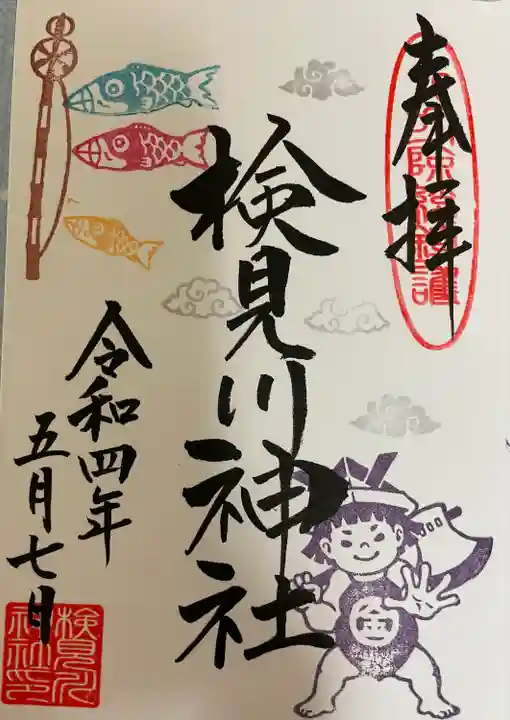 奉拝
検見川神社
令和四年
五月七日
金
検見川
神社印